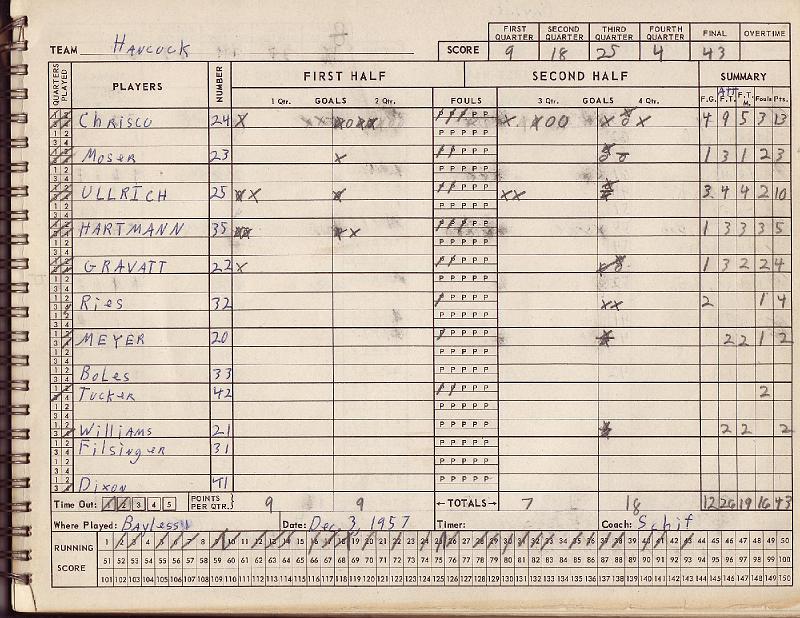 TEAM Hancock SCORE FIRST QUARTER 9 SECOND QUARTER 18 THIRD QUARTER 25 FOURTH QUARTER 4 FINAL 43 OVERTIME
QUARTERS PLAYED PLAYERS NUMBER FIRST HALF SECOND HALF SUMMARY
1 Qtr. GOALS 2 Qtr. FOULS 3 Qtr. GOALS 4 Qtr. F.G. ATT F.T. F.T. M. Fouls Pts.
Chrisco 24 4 9 5 3 13
Moser 23 1 3 1 2 3
ULLRICH 25 3 4 4 2 10
HARTMANN 35 1 3 3 3 5
GRAVATT 22 1 3 2 2 4
Ries 32 2 1 4
MEYER 20 2 2 1 2
Boles 33
Tucker 42 2
Williams 21 2 2 2
Filsinger 31
Dixon 41
Time Out: 1 2 3 4 5 POINTS PER QTR. 9 9 ←TOTALS→ 7 18 12 26 19 16 43
Where Played: Bayless Date: Dec. 3, 1957 Timer: Coach: Schif
RUNNING SCORE
1 2 3 4 5 6 7 8 9 10 11 12 13 14 15 16 17 18 19 20 21 22 23 24 25 26 27 28 29 30 31 32 33 34 35 36 37 38 39 40 41 42 43 44 45 46 47 48 49 50
51 52 53 54 55 56 57 58 59 60 61 62 63 64 65 66 67 68 69 70 71 72 73 74 75 76 77 78 79 80 81 82 83 84 85 86 87 88 89 90 91 92 93 94 95 96 97 98 99 100
101 102 103 104 105 106 107 108 109 110 111 112 113 114 115 116 117 118 119 120 121 122 123 124 125 126 127 128 129 130 131 132 133 134 135 136 137 138 139 140 141 142 143 144 145 146 147 148 149 150